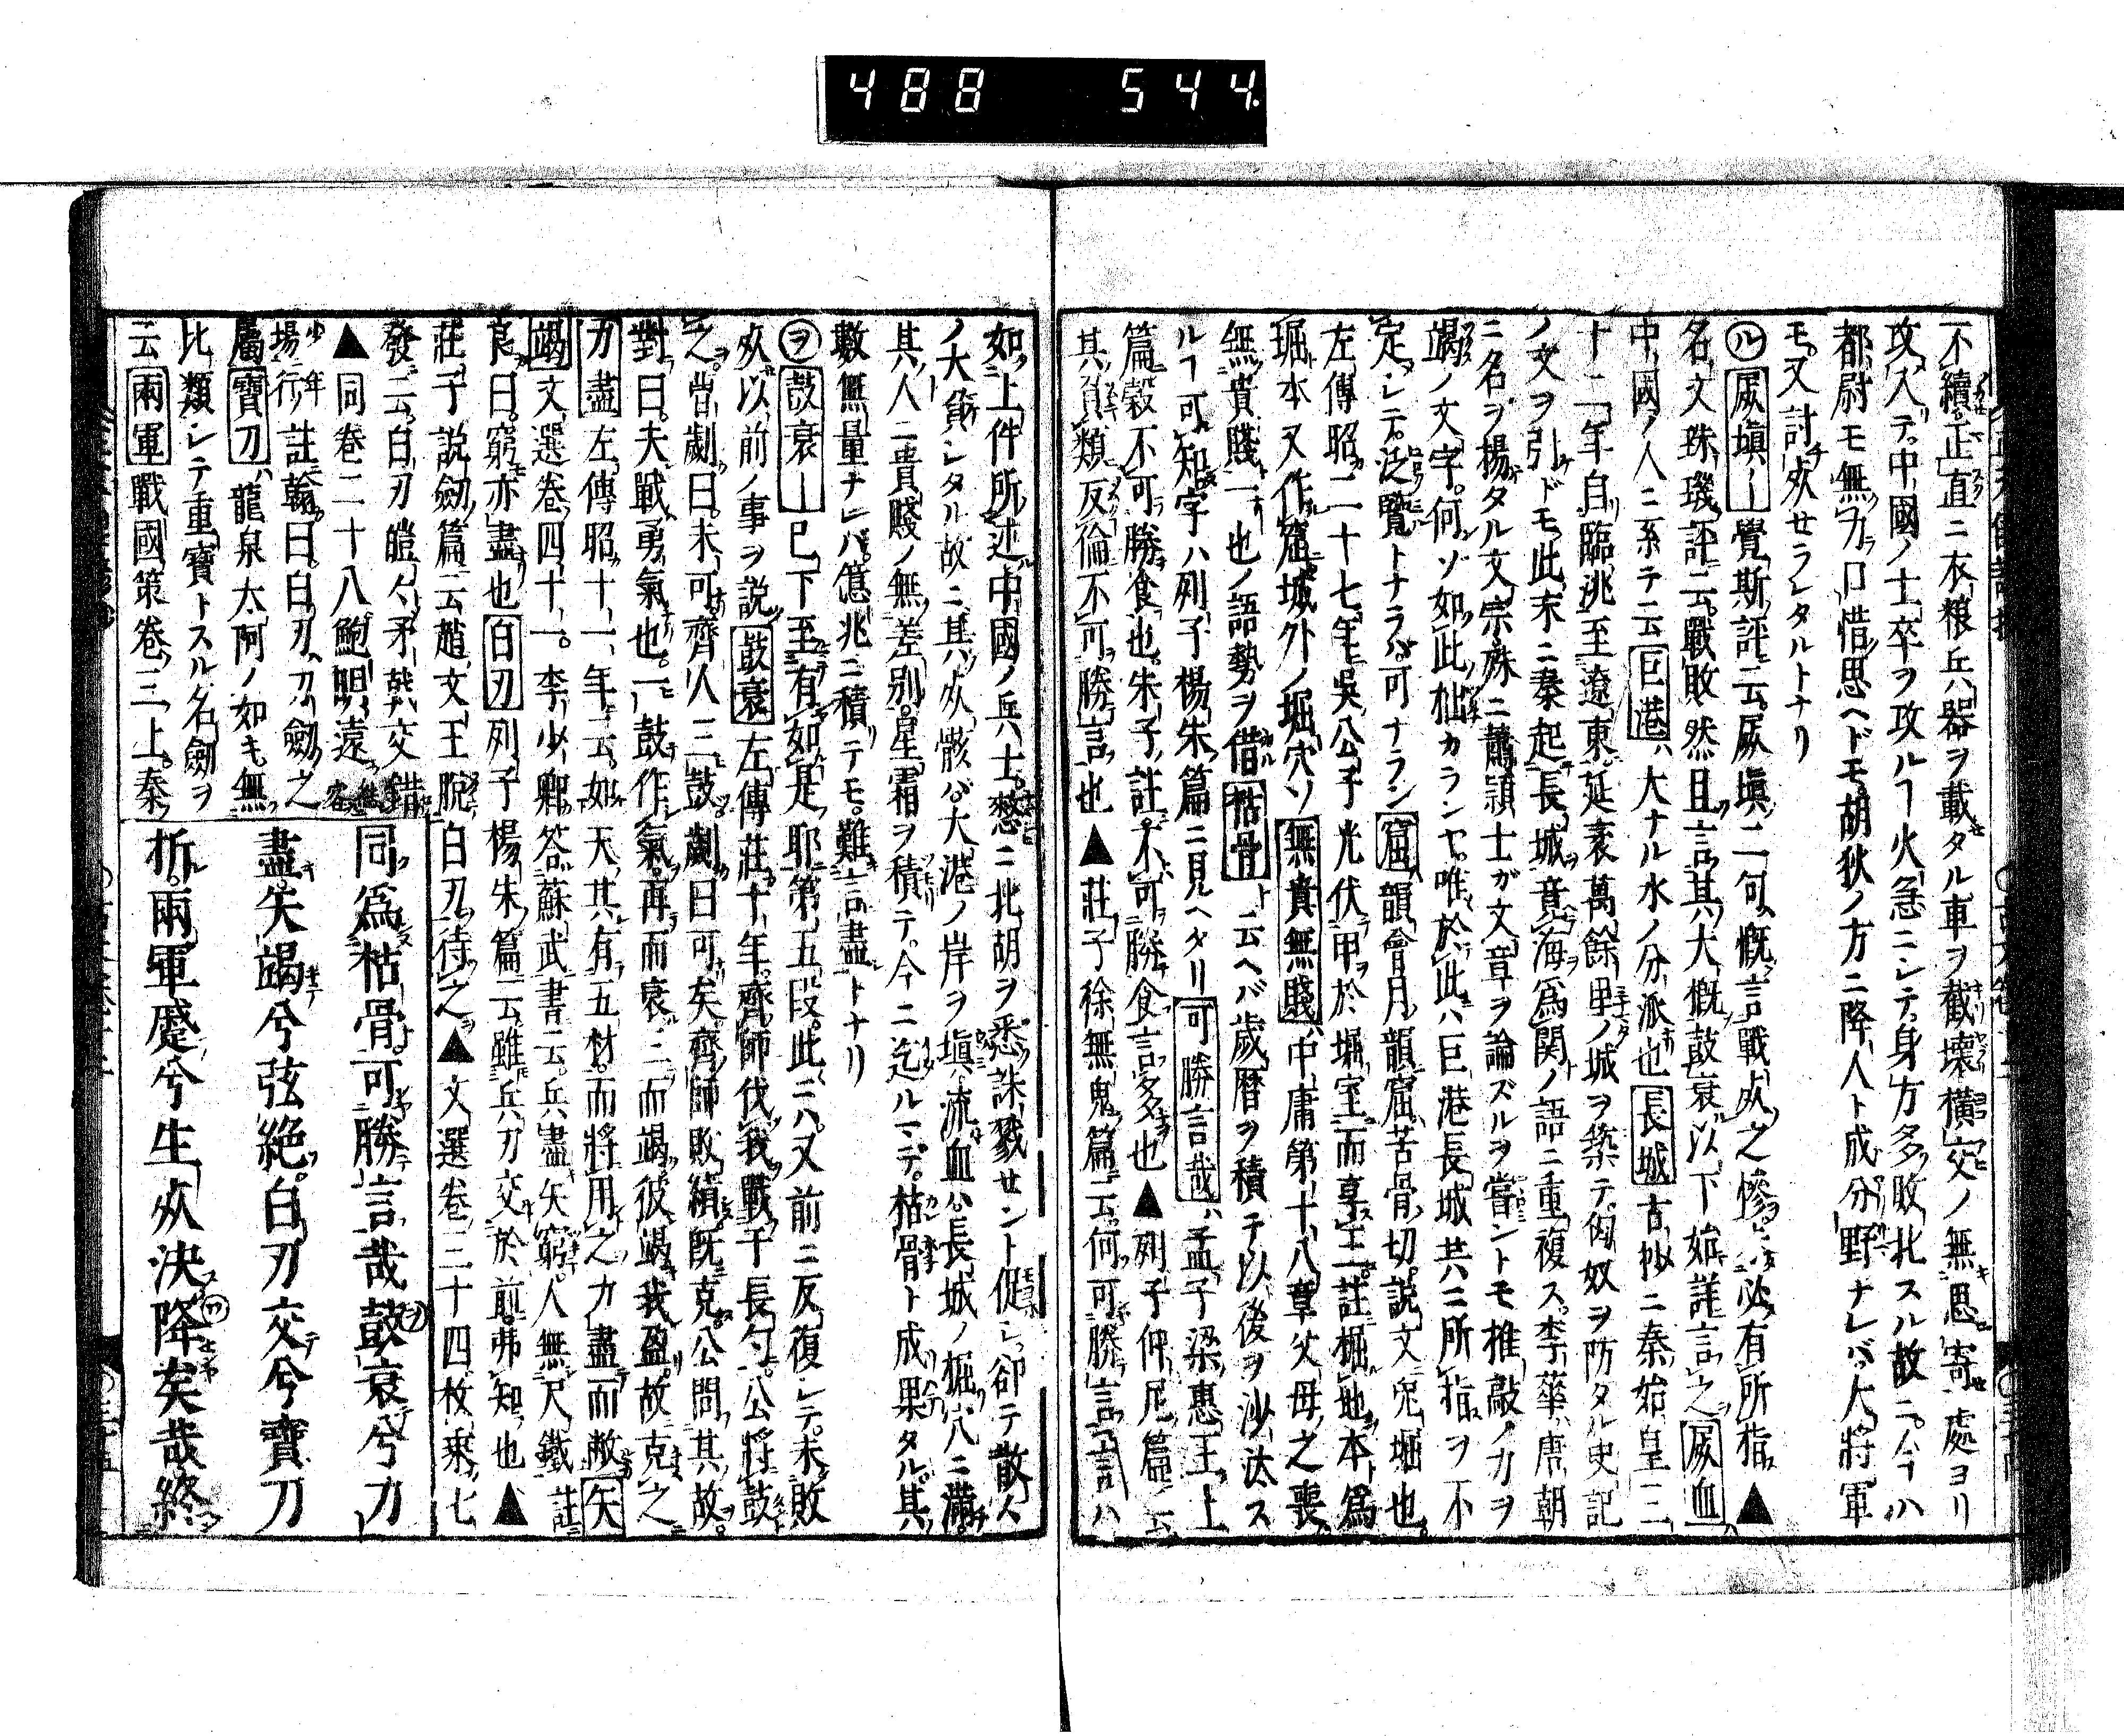 488 544.
不續正直ニ衣粮兵器ヲ載タル車ヲ截壊横交ノ無思寄處ヨリ
攻入テ中國ノ士卒ヲ攻ルヿ火急ニシテ身方多敗北スル故ニ今ハ
都尉モ無力口惜思ヘドモ胡狄ノ方ニ降人ト成分野ナレバ大將軍
モ又討死セラレタルトナリ
㋸屍塡｜覺斯評云屍塡二句慨言戰死之慘必有所指▲
名文珠璣評云戰敗然且言其大概鼓衰以下始詳言之屍血
中國ノ人ニ系テ云巨港大ナル水ノ分派也長城古抄ニ秦始皇三
十二年自臨洮至遼東延袤萬餘里ノ城ヲ築テ匈奴ヲ防タル史記
ノ文ヲ引ドモ此末ニ秦起長城竟海爲関ノ語ニ重複ス李華唐朝
ニ名ヲ揚タル文宗殊ニ蕭頴士ガ文章ヲ論ズルヲ嘗ントモ推敲ノ力ヲ
竭ノ文字何ゾ如此拙カランヤ唯於此ハ巨港長城共ニ所指ヲ不
定シテ泛覽トナラバ可ナラン窟韻會月韻窟苦骨切説文兎堀也
左傳昭二十七年呉公子光伏甲於堀室而享王註掘地本爲
堀本又作窟城外ノ堀穴ソ無貴無賤中庸第十八章父母之喪
無貴賤一也ノ語勢ヲ借枯骨ト云ヘバ歲曆ヲ積テ以後ヲ沙汰ス
ルヿ可知字ハ列子楊朱篇ニ見ヘタリ可勝言哉孟子梁惠王上
篇穀不可勝食也朱子註不可勝食言多也▲列子仲尼篇云
其負類反倫不可勝言也▲莊子徐無鬼篇云何可勝言言ハ
如上件所述中國ノ兵士愁ニ北胡ヲ悉誅戮セント促シ卻テ散々
ノ大負シタル故ニ其死骸ガ大港ノ岸ヲ塡流血ハ長城ノ堀穴ニ滿
其人ニ貴賤ノ無差别星霜ヲ積テ今ニ迄ルマデ枯骨ト成果タル其
數無量ナレバ億兆ニ積テモ難言盡トナリ
㋾鼓衰｜已下至有如是耶第五段此ニハ又前ニ反復シテ未敗
死以前ノ事ヲ説鼓衰左傳莊十年齊師伐我戰于長勺公將鼓
之曹劌曰未可齊人三鼓劌曰可矣齊師敗績既克公問其故
對曰夫戰勇氣也一鼓作氣再而衰三而竭彼竭我盈故克之
力盡左傳昭十一年云如天其有五材而將用之力盡而敝矢
竭文選卷四十一李少卿答蘇武書云兵盡矢窮人無尺鐵註
良曰窮亦盡也白刃列子楊朱篇云雖兵刃交於前弗知也▲
莊子説劒篇云趙文王脱白刃待之▲文選卷三十四枚乘七
發云白刃皚々矛戟交錯
▲同卷二十八鮑明遠結客
少年
場行註翰曰白刃刀劒之
屬寶刀龍泉太阿ノ如キ無
比類シテ重寶トスル名劒ヲ
云兩軍戰國策卷三上秦
同爲枯骨可勝言哉鼓衰兮力
盡矢竭兮弦絶白刃交兮寶刀
折兩軍蹙兮生死決降矣哉終